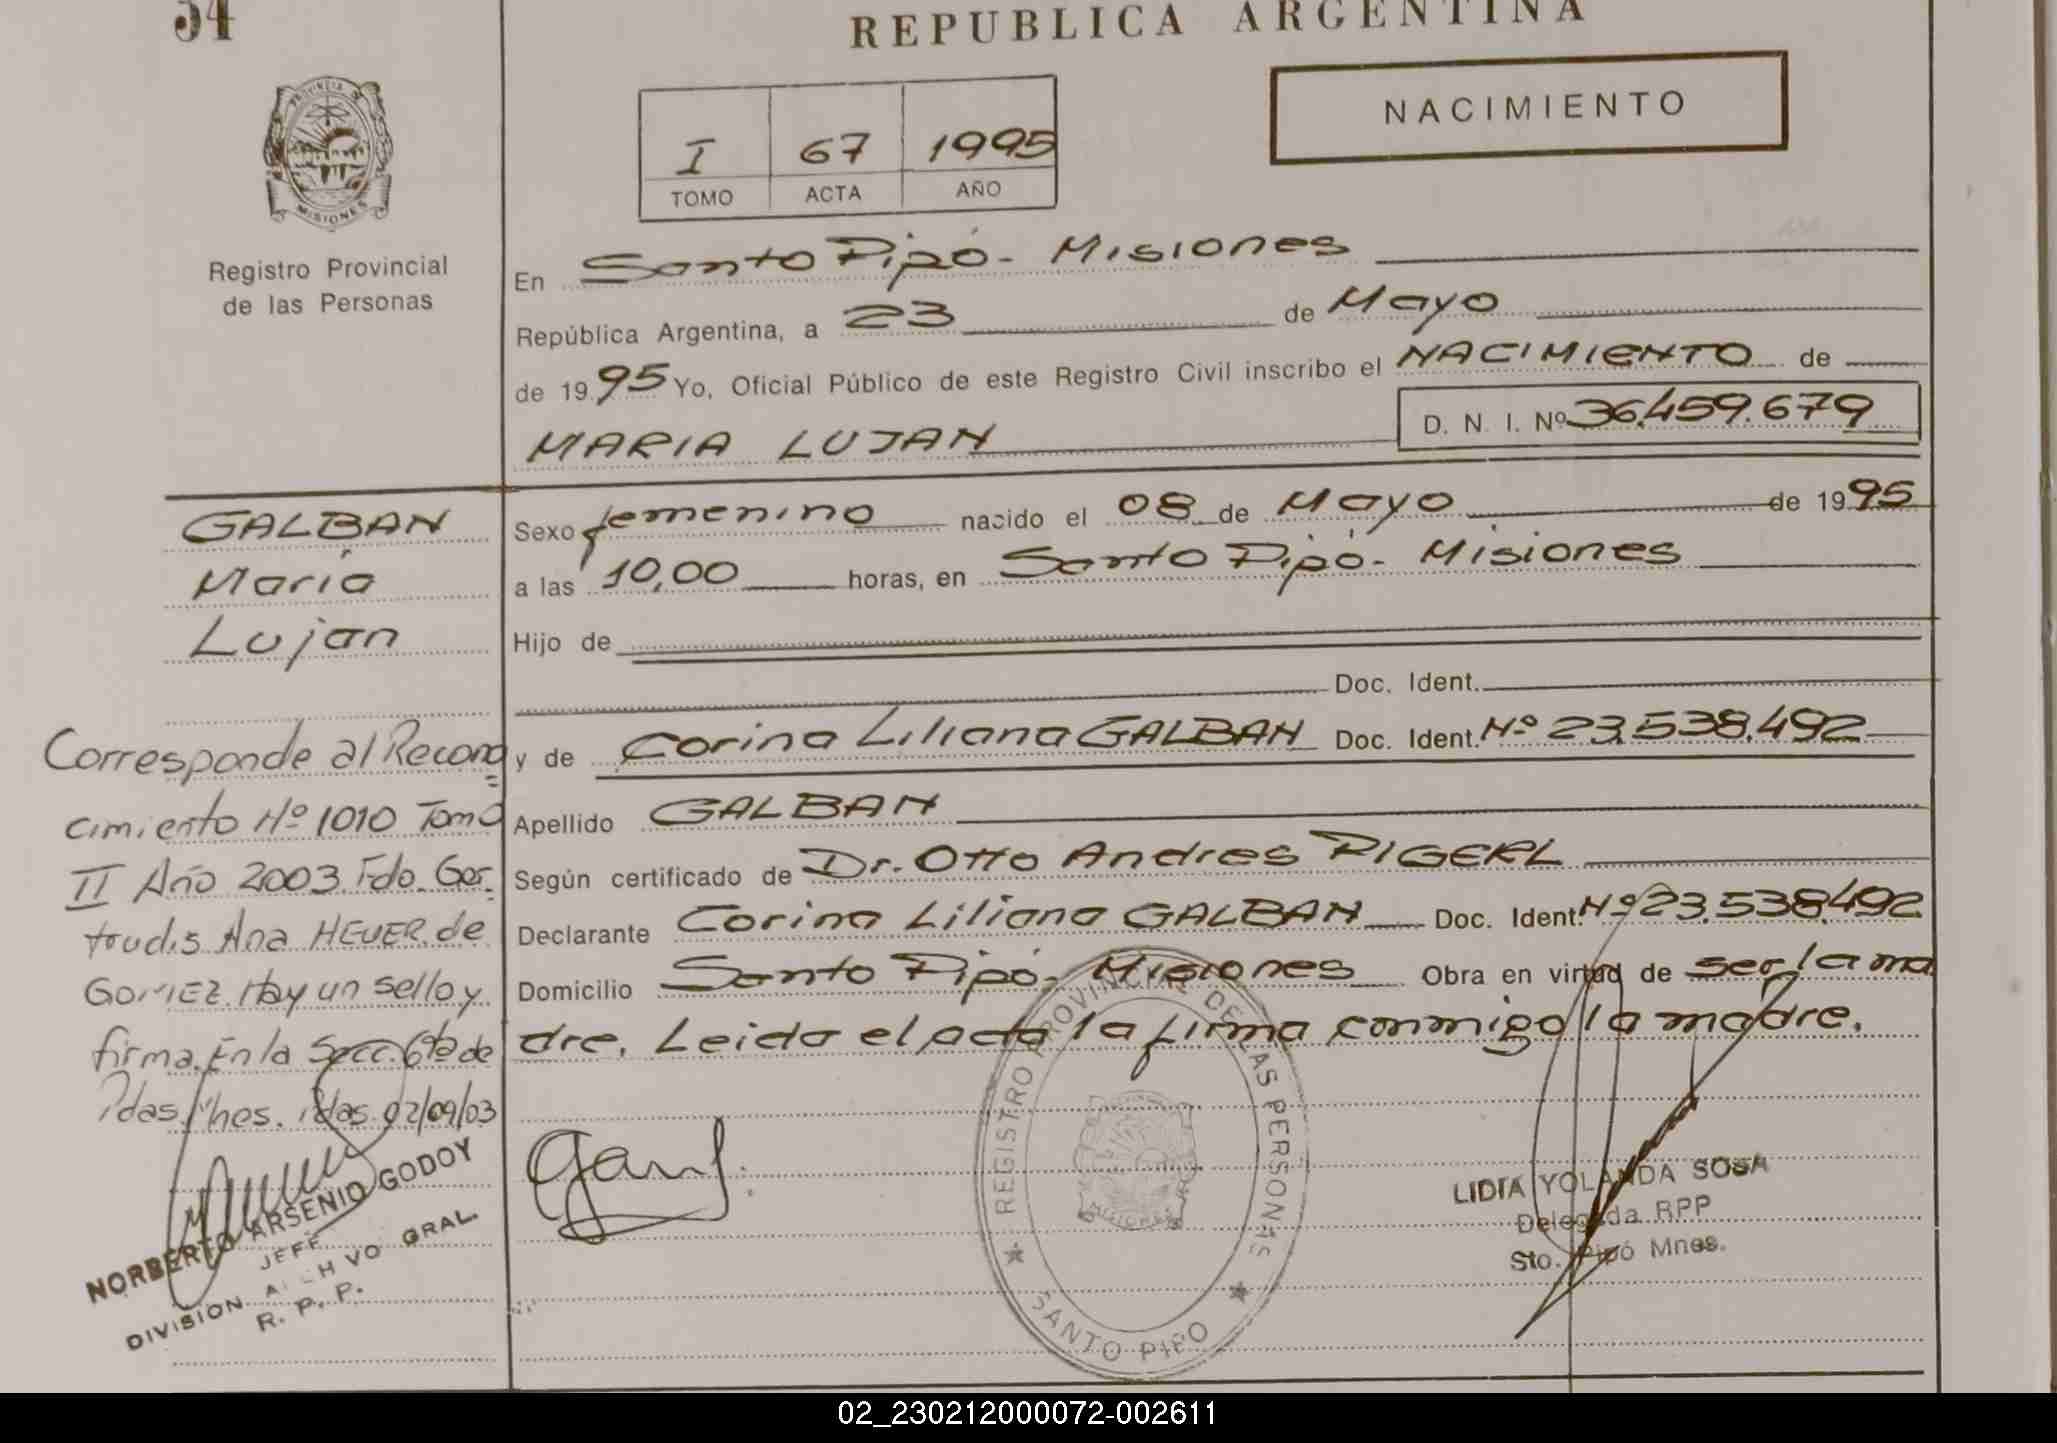 54
REPUBLICA ARGENTINA
PROVINCIA DE
MISIONES
Registro Provincial
de las Personas
I 67 1995
TOMO ACTA AÑO
NACIMIENTO
En Santo Pipó - Misiones
República Argentina, a 23 de Mayo
de 1995 Yo, Oficial Público de este Registro Civil inscribo el NACIMIENTO de
MARIA LUJAN D. N. I. Nº 36.459.679
GALBAN
María
Lujan
Sexo femenino nacido el 08 de Mayo de 1995
a las 10,00 horas, en Santo Pipó - Misiones
Hijo de
Doc. Ident.
y de Corina Liliana GALBAN Doc. Ident. Nº 23.538.492
Apellido GALBAN
Según certificado de Dr. Otto Andres PIGERL
Declarante Corina Liliana GALBAN Doc. Ident. Nº 23.538.492
Domicilio Santo Pipó - Misiones Obra en virtud de ser la ma
dre. Leida el acta la firma conmigo la madre.
Corresponde al Recono
cimiento Nº 1010 Tomo
II Año 2003 Fdo. Ger
trudis Ana HEUER de
GOMEZ. Hay un sello y
firma. En la Secc. 6ta de
Pdas. Mnes. Pdas. 02/09/03
NORBERTO ARSENIO GODOY
JEFE
DIVISION ARCHIVO GRAL.
R. P. P.
REGISTRO PROVINCIAL DE LAS PERSONAS
MISIONES
SANTO PIPO
LIDIA YOLANDA SOSA
Delegada RPP
Sto. Pipó Mnes.
02_230212000072-002611